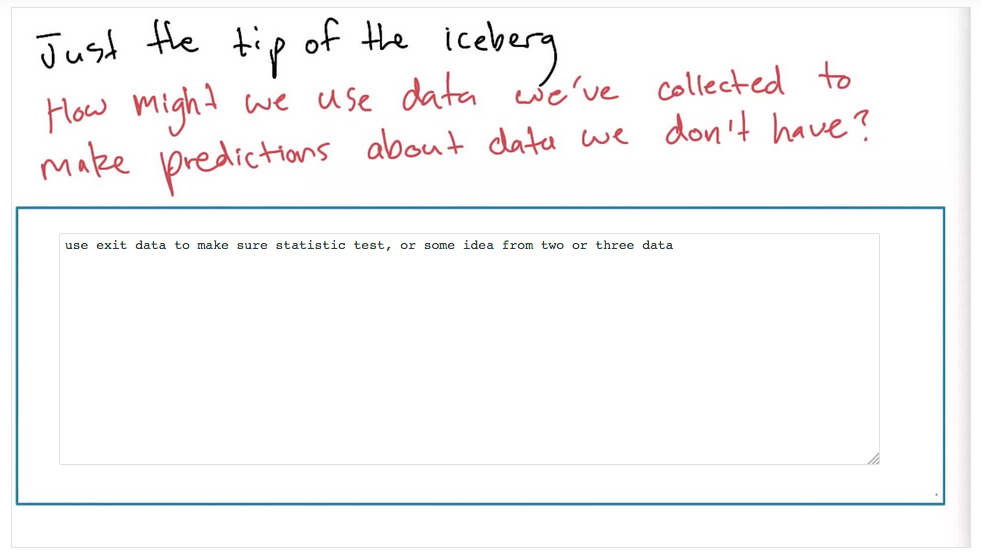 Just the tip of the iceberg
How might we use data we've collected to
make predictions about data we don't have?
use exit data to make sure statistic test, or some idea from two or three data